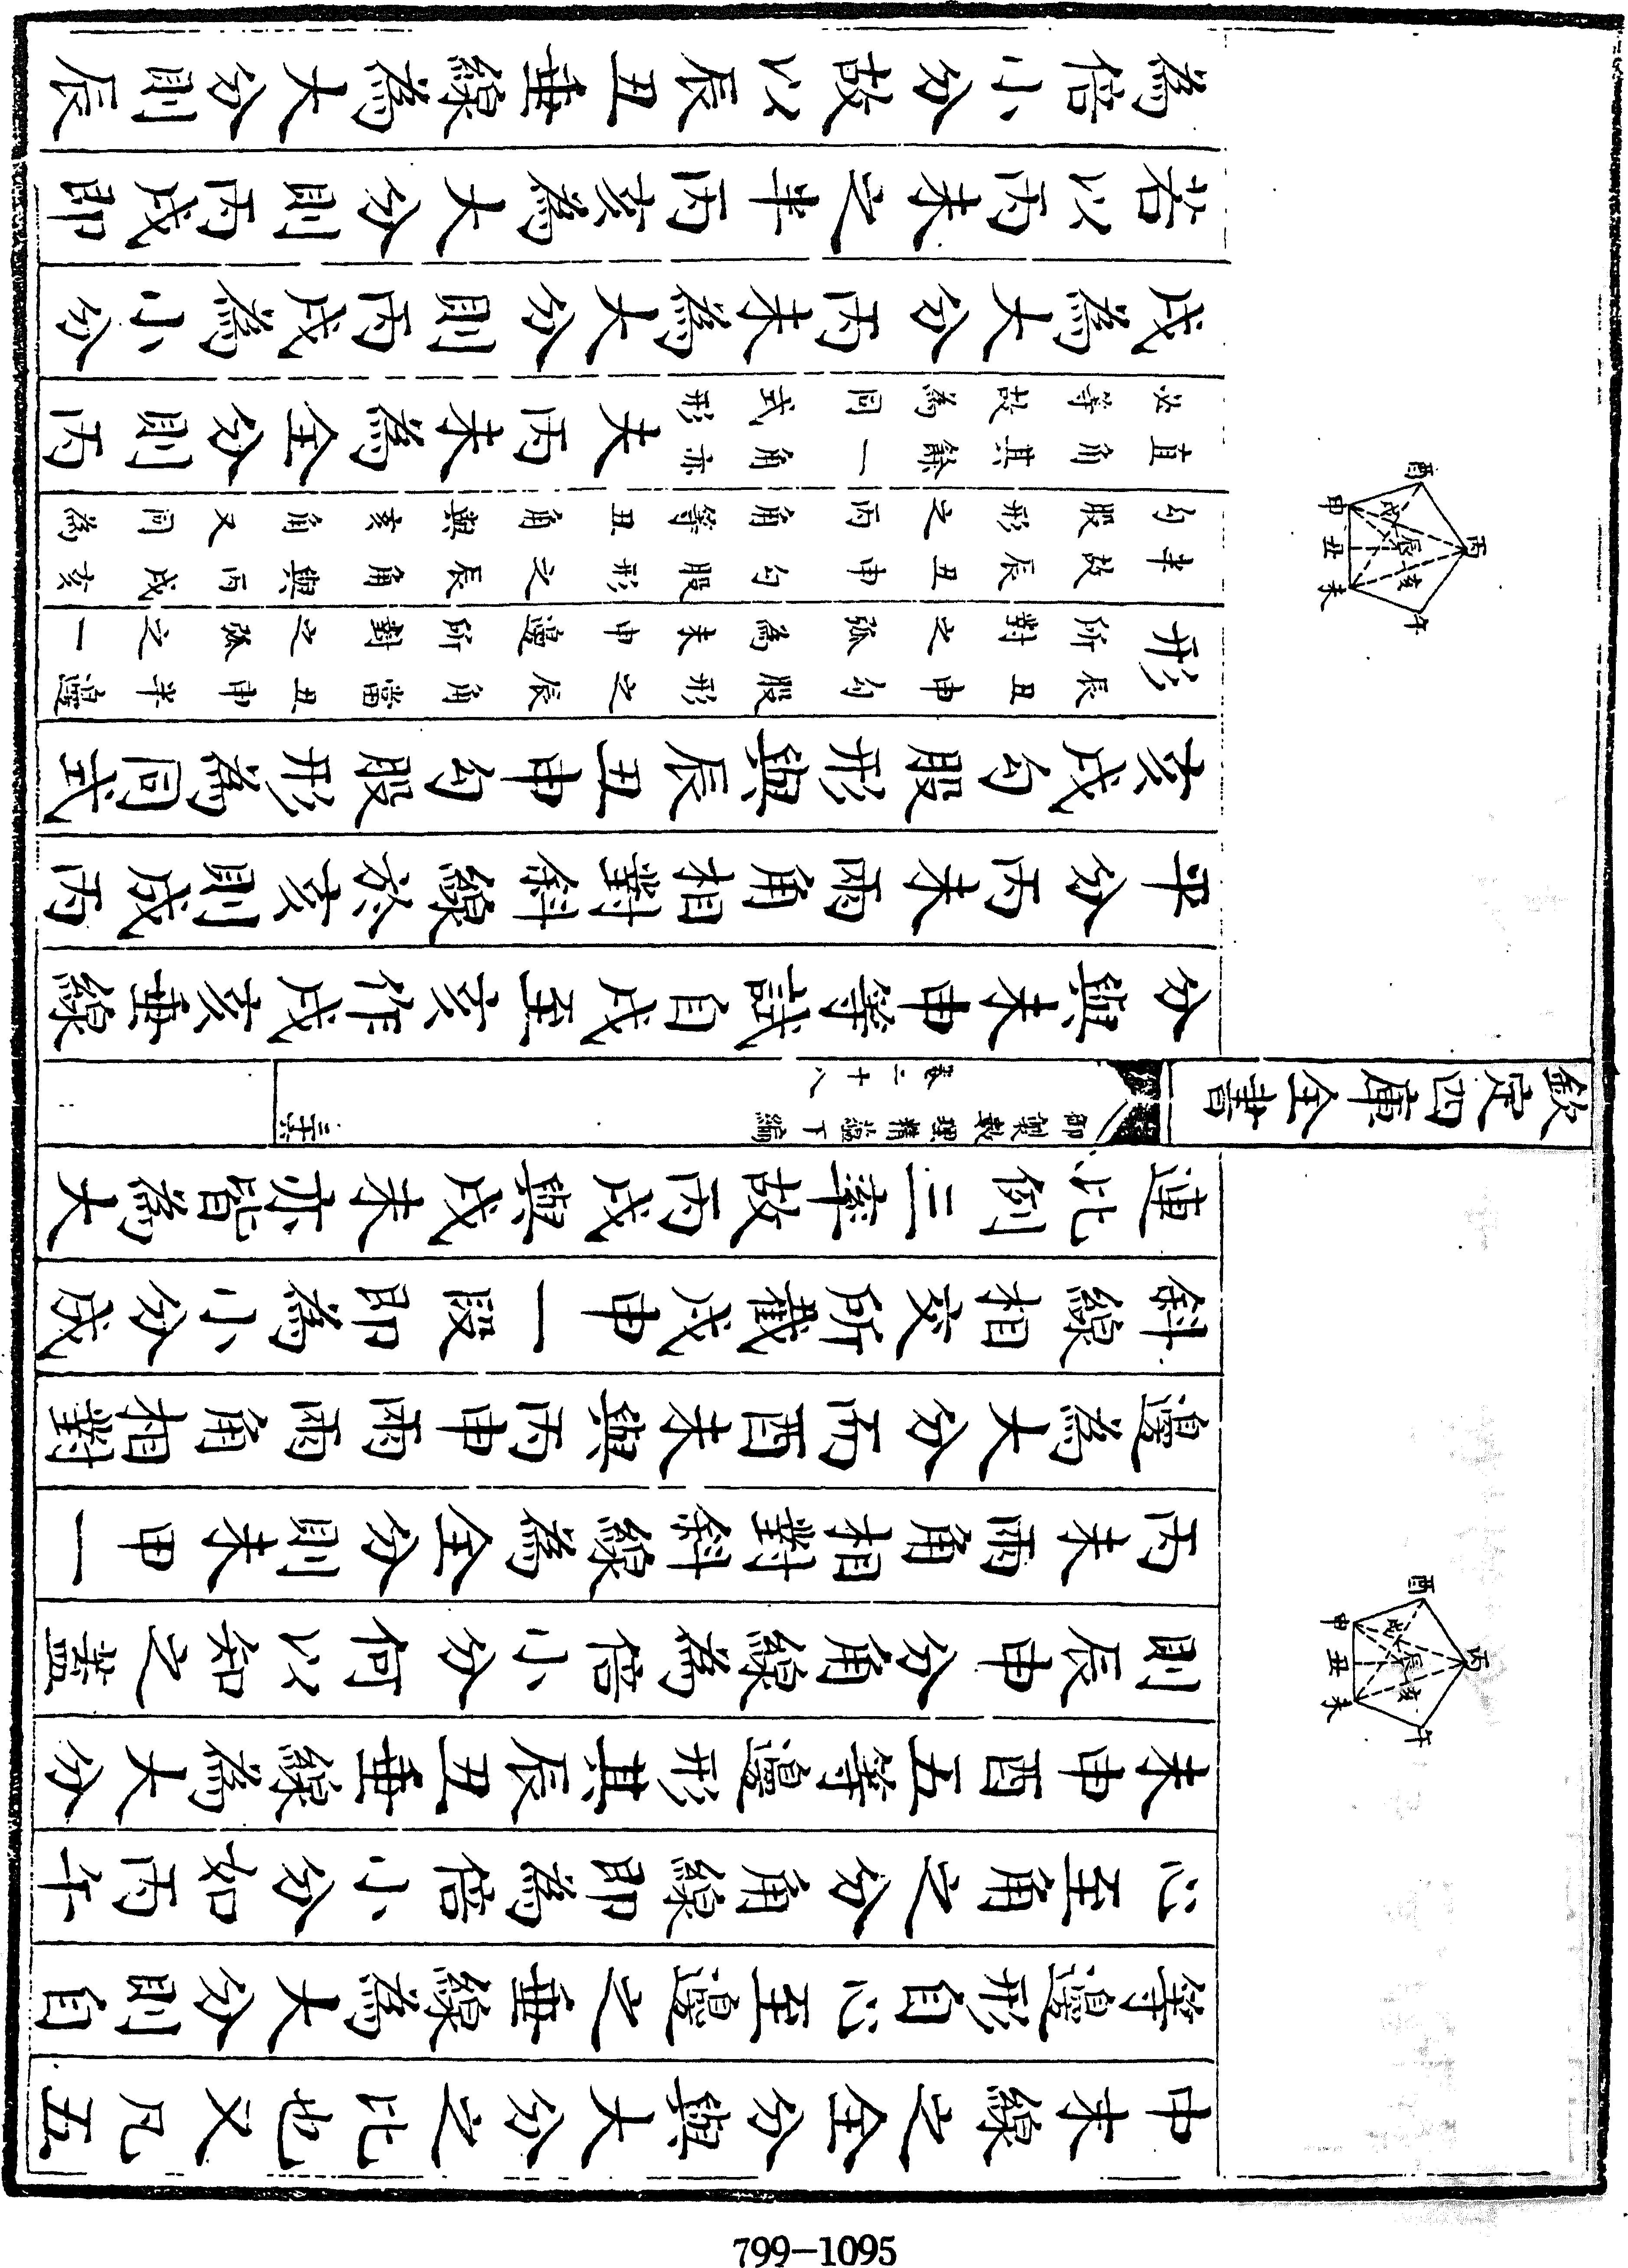 中末線之全分與大分之比也又凡五
等邊形自心至邊之垂線為大分則自
心至角之分角線即為倍小分如丙午
未申酉五等邊形其辰丑垂線為大分
則辰申分角線為倍小分何以知之蓋
丙未兩角相對斜線為全分則未申一
邊為大分而酉未與丙申兩兩角相對
斜線相交所截戌申一段即為小分成
連比例三率故丙戌與戌未亦皆為大
酉
申 戌
丑 辰 丙
未 亥
午
欽定四庫全書
御製數理精蘊下編
卷二十八
分與未申等試自戌至亥作戌亥垂線
平分丙未兩角相對斜線於亥則成丙
亥戌勾股形與辰丑申勾股形為同式
形
辰丑申勾股形之辰角當丑申半邊
所對之弧為未申邊所對之弧之一
半故辰丑申勾股形之辰角與丙戌亥
勾股形之丙角等丑角與亥角又同為
直角其餘一角亦
必等故為同式形
夫丙未為全分則丙
戌為大分丙未為大分則丙戌為小分
若以丙未之半丙亥為大分則丙戌即
為倍小分故以辰丑垂線為大分則辰
酉
申 戌
丑 辰 丙
未 亥
午
799-1095